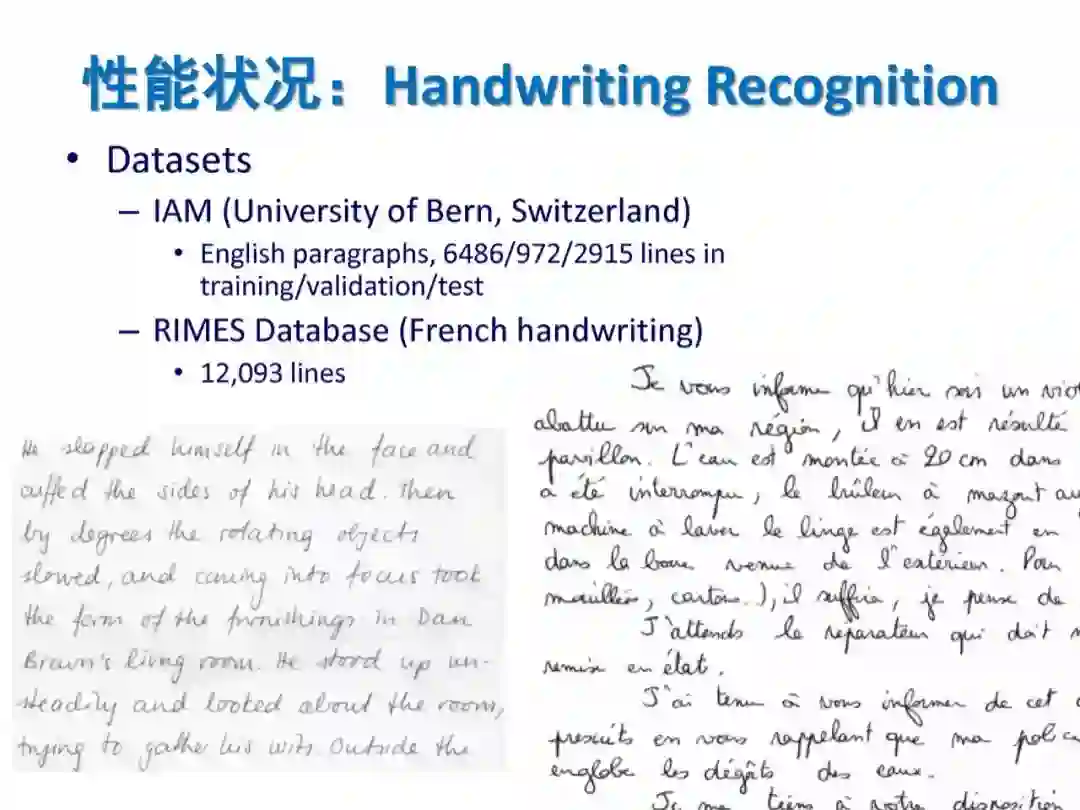 性能状况：Handwriting Recognition
• Datasets
– IAM (University of Bern, Switzerland)
• English paragraphs, 6486/972/2915 lines in
training/validation/test
– RIMES Database (French handwriting)
• 12,093 lines
He slapped himself in the face and
cuffed the sides of his head. Then
by degrees the rotating objects
slowed, and coming into focus took
the form of the furnishings in Dan
Brown's living room. He stood up un-
steadily and looked about the room,
trying to gather his wits. Outside the
Je vous informe qu'hier soir un
abattu sur ma région, il en est résulté
pavillon. L'eau est montée à 20 cm dans
a été interrompu, le brûleur à mazout
machine à laver le linge est également en
dans la boue venue de l'extérieur. Pour
cartons..), il suffira, je pense de
J'attends le réparateur qui doit
remise en état.
J'ai tenu à vous informer de cet
en vous rappelant que ma
englobe les dégâts des eaux.
Je me tiens à votre disposition